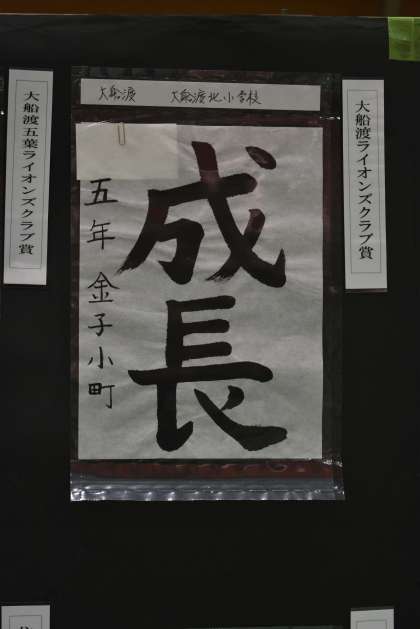 大船渡 大船渡北小学校
大船渡ライオンズクラブ賞
成長
五年 金子小町
大船渡五葉ライオンズクラブ賞